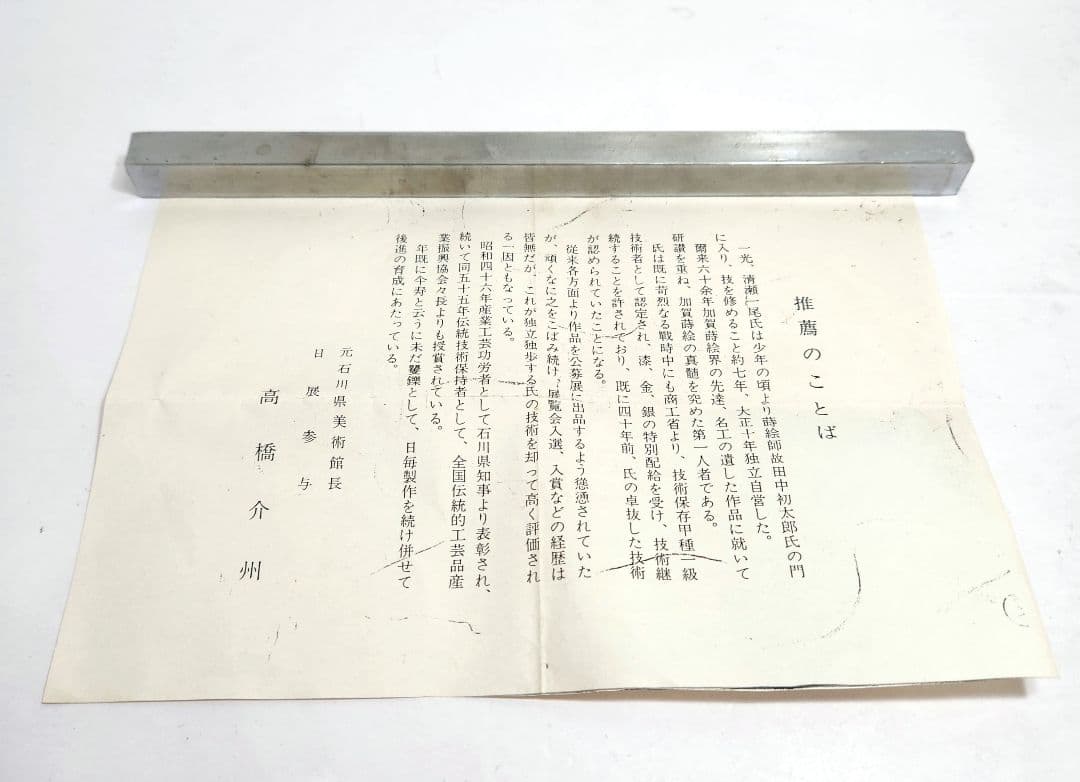 推薦のことば
一光、清瀬一尾氏は少年の頃より蒔絵師故田中初太郎氏の門
に入り、技を修めること約七年、大正十年独立自営した。
爾来六十余年加賀蒔絵界の先達、名工の遺した作品に就いて
研讃を重ね、加賀蒔絵の真髄を究めた第一人者である。
氏は既に苛烈なる戦時中にも商工省より、技術保存甲種一級
技術者として認定され、漆、金、銀の特別配給を受け、技術継
続することを許されており、既に四十年前、氏の卓抜した技術
が認められていたことになる。
従来各方面より作品を公募展に出品するよう慫慂されていた
が、頑くなに之をこばみ続け、展覧会入選、入賞などの経歴は
皆無だが、これが独立独歩する氏の技術を却って高く評価され
る一因ともなっている。
昭和四十六年産業工芸功労者として石川県知事より表彰され、
続いて同五十五年伝統技術保持者として、全国伝統的工芸品産
業振興協会々長よりも授賞されている。
年既に傘寿と云うに未だ矍鑠として、日毎製作を続け併せて
後進の育成にあたっている。
元石川県美術館長
日展参与
高橋介州